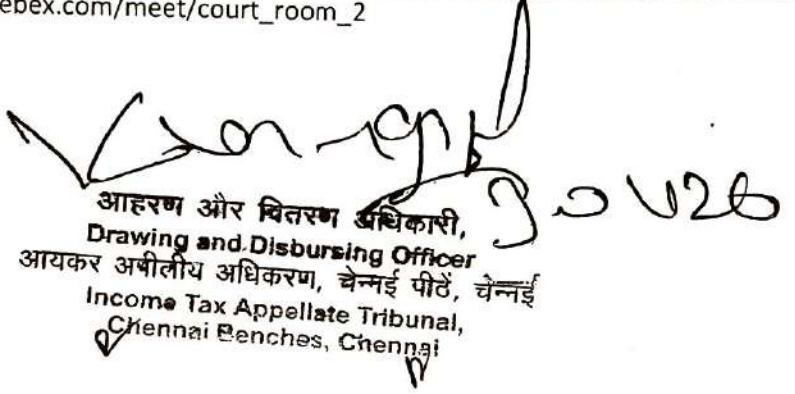 ebex.com/meet/court_room_2
आहरण और वितरण अधिकारी,
Drawing and Disbursing Officer
आयकर अपीलीय अधिकरण, चेन्नई पीठें, चेन्नई
Income Tax Appellate Tribunal,
Chennai Benches, Chennai